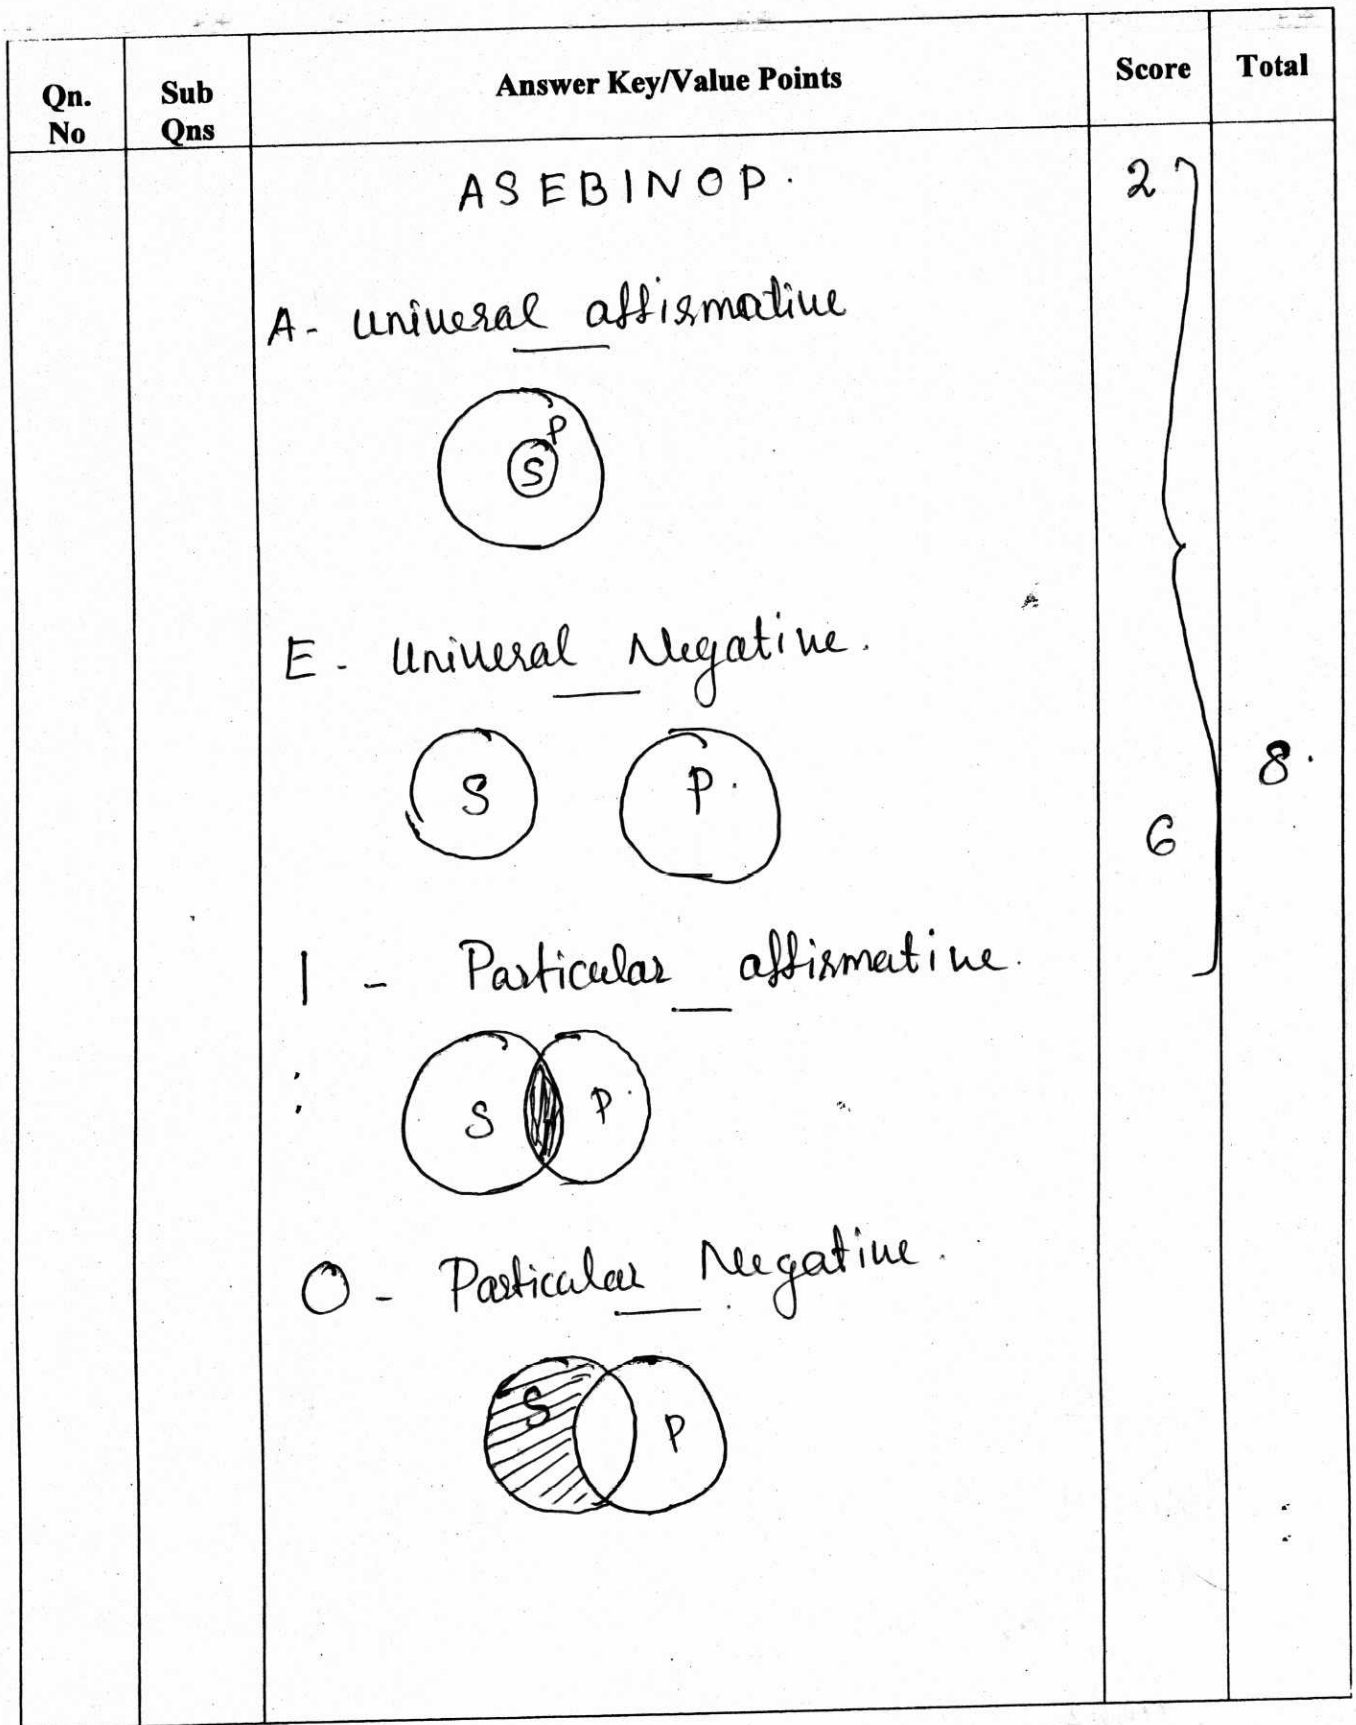 Qn. No
Sub Qns
Answer Key/Value Points
Score
Total
ASEBINOP.
2
A - Univeral affirmative
P
S
E - Univeral Negative.
S
P.
8.
6
I - Particular affirmative.
S
P.
O - Particular Negative.
S
P